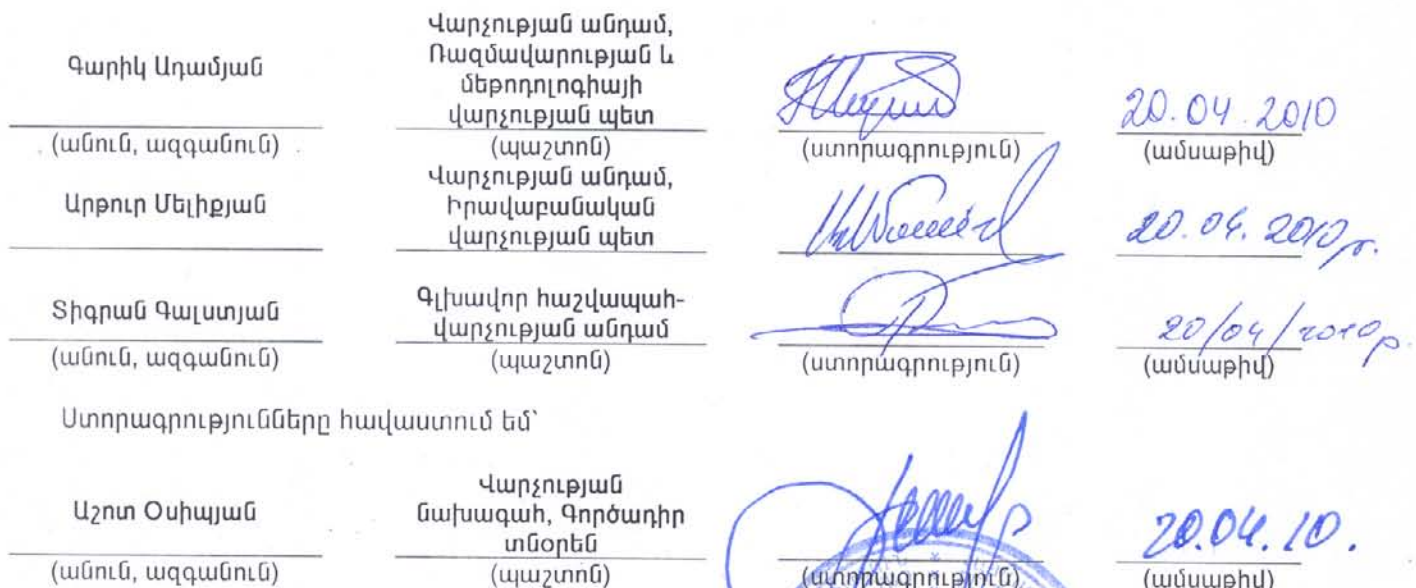 Վարչության անդամ,
Ռազմավարության և
Գարիկ Ադամյան մեթոդոլոգիայի
վարչության պետ 20.04.2010
(անուն, ազգանուն) (պաշտոն) (ստորագրություն) (ամսաթիվ)
Վարչության անդամ,
Արթուր Մելիքյան Իրավաբանական
վարչության պետ 20.04.2010թ.
Տիգրան Գալստյան Գլխավոր հաշվապահ-
վարչության անդամ 20/04/2010թ.
(անուն, ազգանուն) (պաշտոն) (ստորագրություն) (ամսաթիվ)
Ստորագրությունները հավաստում եմ՝
Վարչության
Աշոտ Օսիպյան նախագահ, Գործադիր
տնօրեն 20.04.10.
(անուն, ազգանուն) (պաշտոն) (ստորագրություն) (ամսաթիվ)